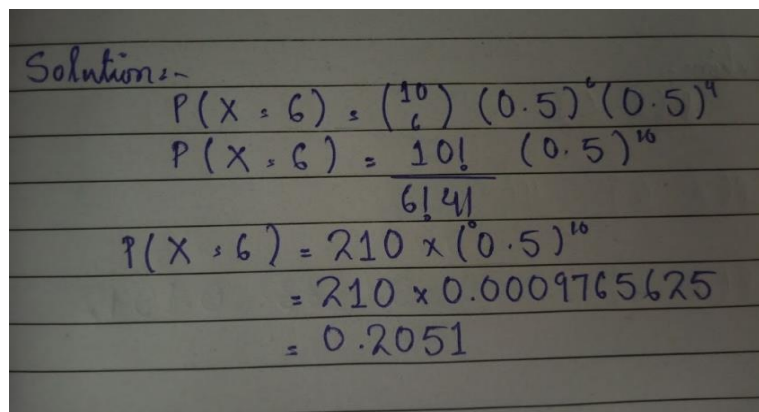 Solution:-
P(X = 6) = (10 6) (0.5)^6 (0.5)^4
P(X = 6) = 10!/6!4! (0.5)^10
P(X = 6) = 210 × (0.5)^10
= 210 × 0.0009765625
= 0.2051